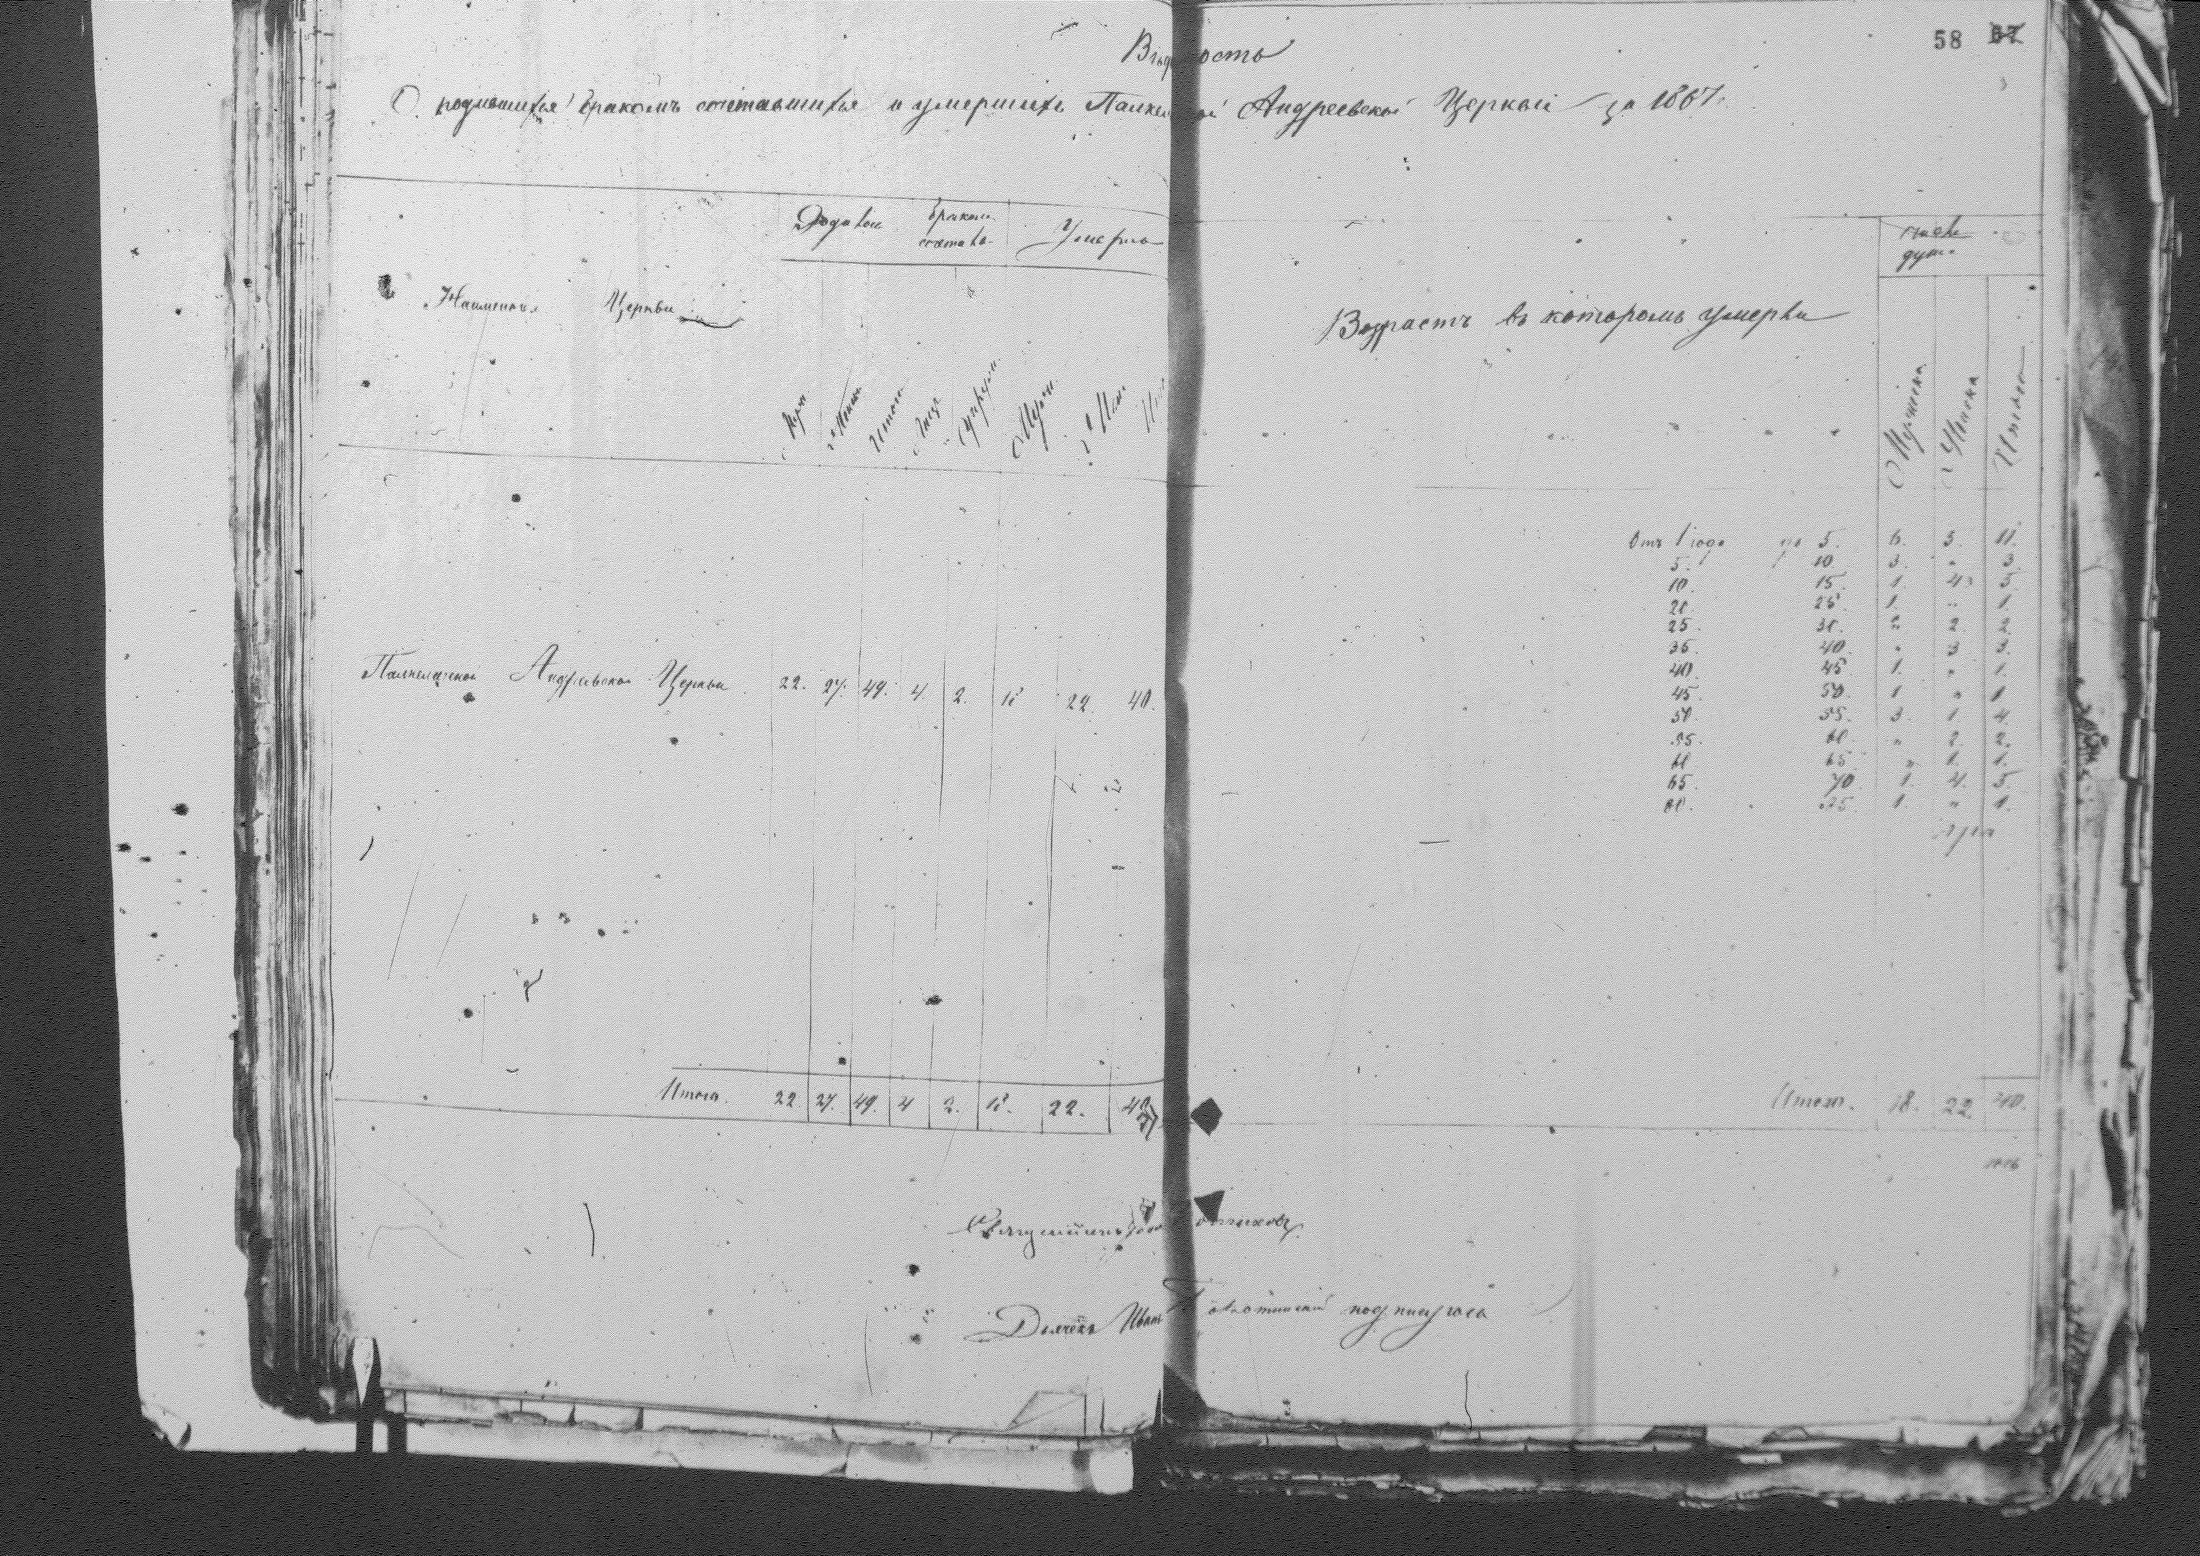 58 57
Вѣдомость
О родившихся бракомъ сочетавшихся и умершихъ Андреевской Церкви за 1867
Родивши бракомъ сочетав. Умерло
число душъ
Наименов Церкви
Возрастъ въ которомъ умерли
Муж Женск Итого Лицъ Муж Жен
Мужеска Женска Итого
Отъ 1 года до 5. 6. 5. 11.
5. 10 3. „ 3.
10. 15. 1. 4. 5.
20. 25. 1. „ 1.
25. 30. „ 2. 2.
35. 40. „ 3 3.
40. 45. 1. „ 1.
45. 50. 1 „ 1
50. 55. 3. 1. 4.
55. 60. „ 2. 2.
60 65. „ 1. 1.
65. 70 1. 4. 5.
80. 85. 1. „ 1.
Андреевской Церкви 22. 27. 49. 4. 2. 18 22. 40.
Итого. 22. 27. 49. 4 2. 18. 22. 40
Итого. 18. 22. 40.
Священникъ
Дьячекъ Иванъ подписуюсь